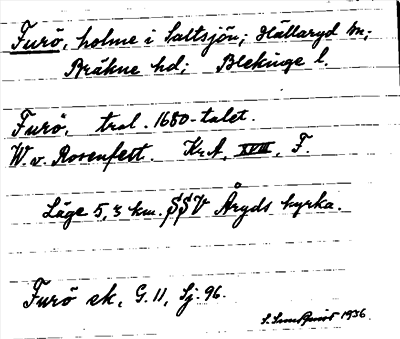 Furö, holme i Saltsjön; Hällaryd sn;
Bräkne hd; Blekinge l.
Furö, trol. 1680-talet.
W. v. Rosenfest. Kr.A, XVIII, F.
Läge 5,3 km. SSV Åryds kyrka.
Furö ek, G. 11, Sj. 96.
S. Sundquist 1936.